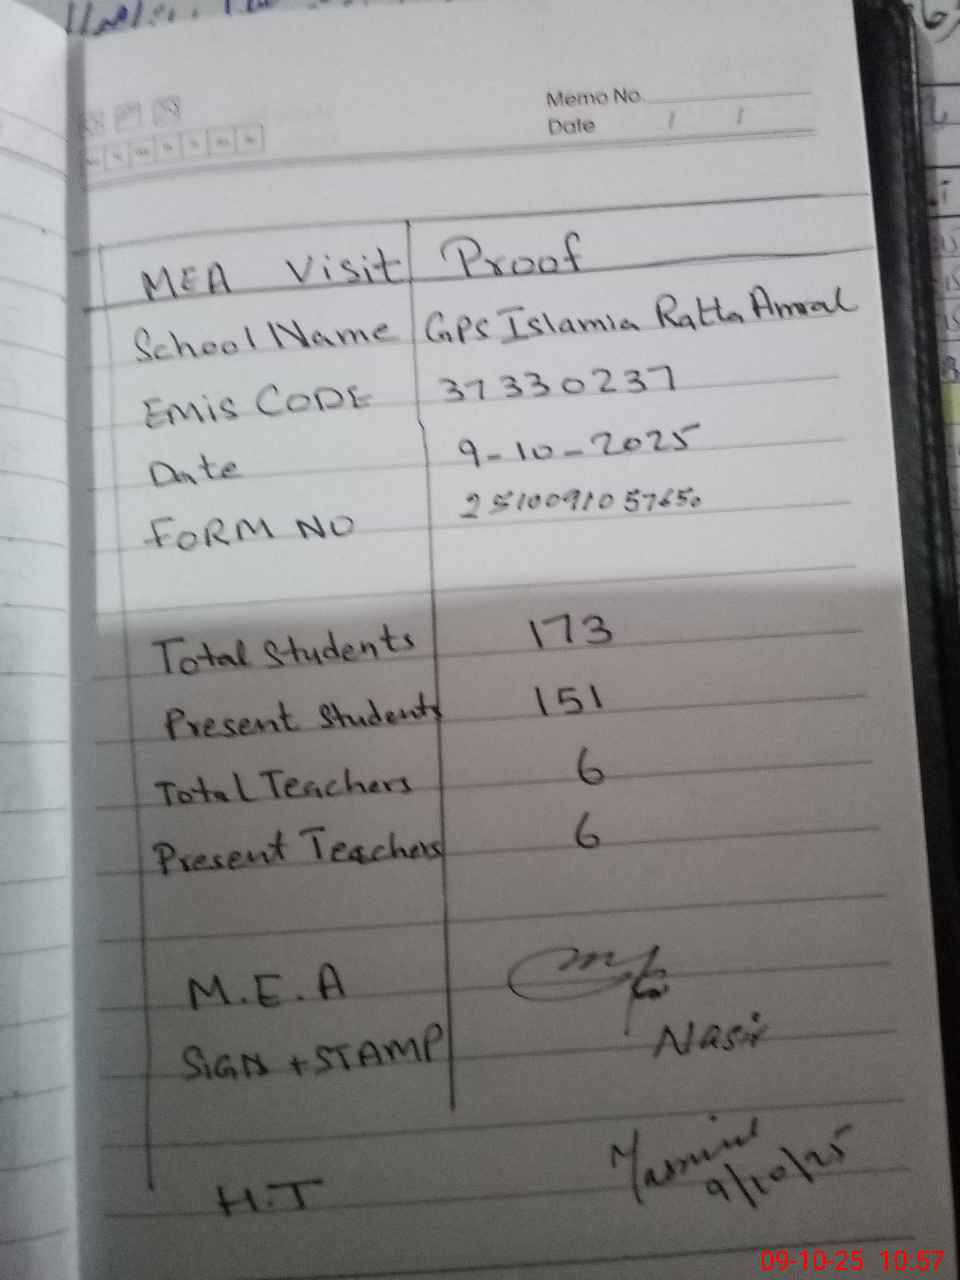 Memo No.
Date / /
MEA Visit Proof
School Name GPS Islamia Ratta Amral
EMIS CODE 37330237
Date 9-10-2025
FORM NO 2510091057650
Total Students 173
Present Students 151
Total Teachers 6
Present Teachers 6
M.E.A
SIGN + STAMP Nasir
H.T
9/10/25
09-10-25 10:57